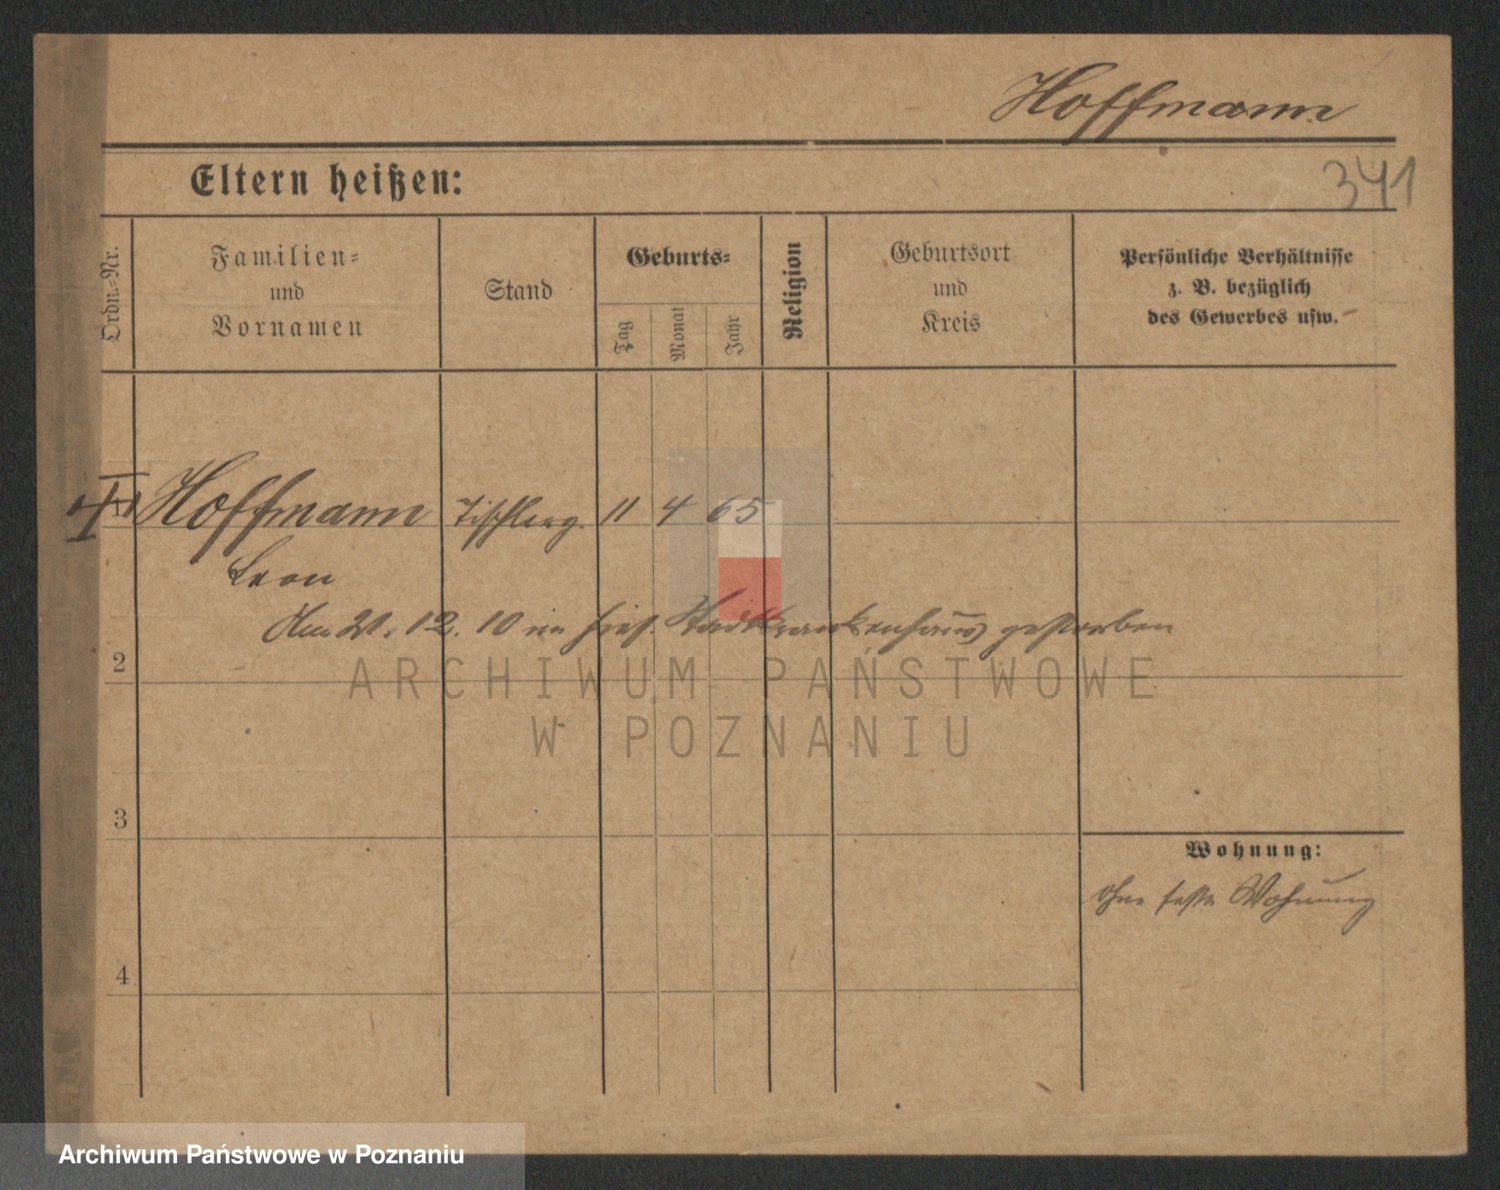 Hoffmann
341
Eltern heißen:
Ordn.-Nr.
Familien-
und
Vornamen
Stand
Geburts-
Tag
Monat
Jahr
Religion
Geburtsort
und
Kreis
Persönliche Verhältnisse
z. B. bezüglich
des Gewerbes usw.
1 Hoffmann Tischlerg. 11 4 65
Leon
Am 21. 12. 10 im hies. Stadtkrankenhaus gestorben
2
ARCHIWUM PAŃSTWOWE
W POZNANIU
3
Wohnung:
Ohne feste Wohnung
4
Archiwum Państwowe w Poznaniu